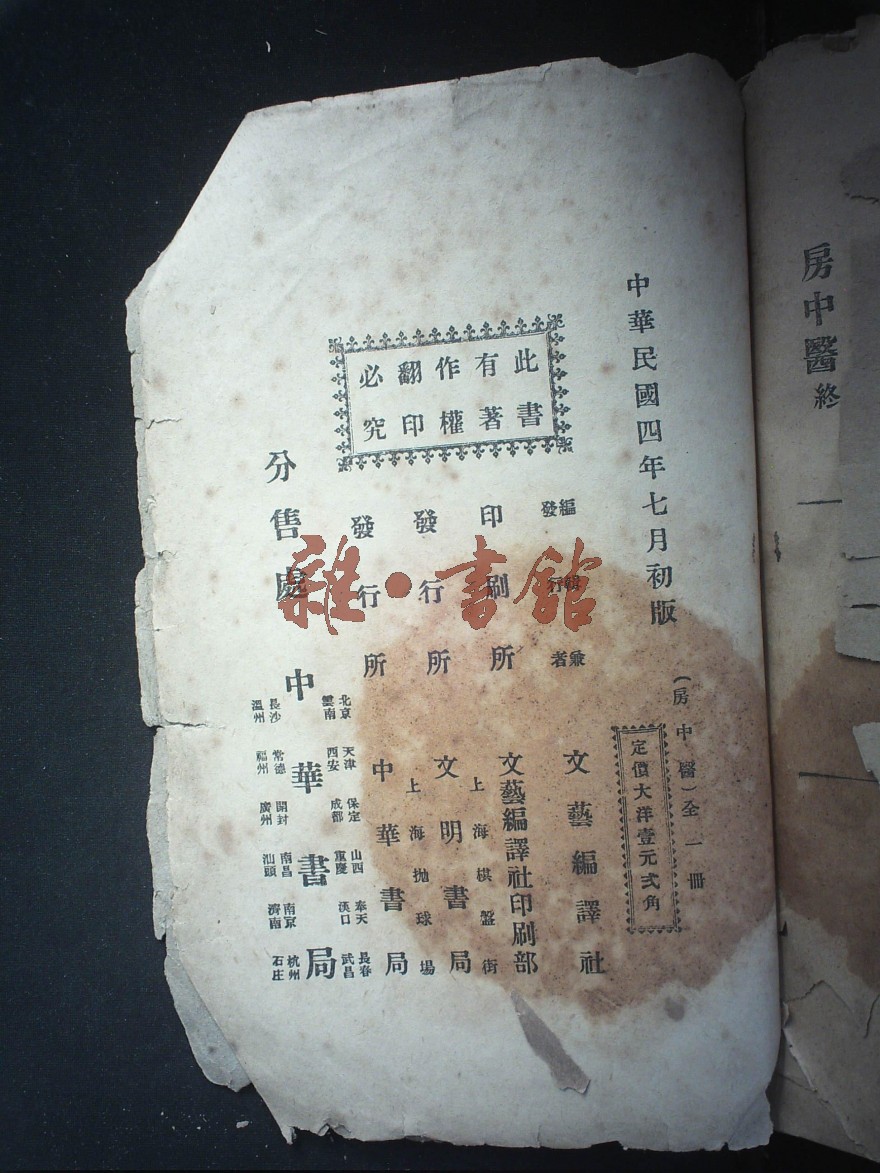 房中醫終
中華民國四年七月初版
(房中醫)全一冊
定價大洋壹元弍角
此書
有著
作權
翻印
必究
編輯兼
發行者
文藝編譯社
印刷所
文藝編譯社印刷部
上海棋盤街
發行所
文明書局
上海拋球場
發行所
中華書局
分售處
北京 天津 保定 山西 奉天 長春
雲南 西安 成都 重慶 漢口 武昌
中華書局
長沙 常德 開封 南昌 南京 杭州
溫州 福州 廣州 汕頭 濟南 石庄
雜·書館